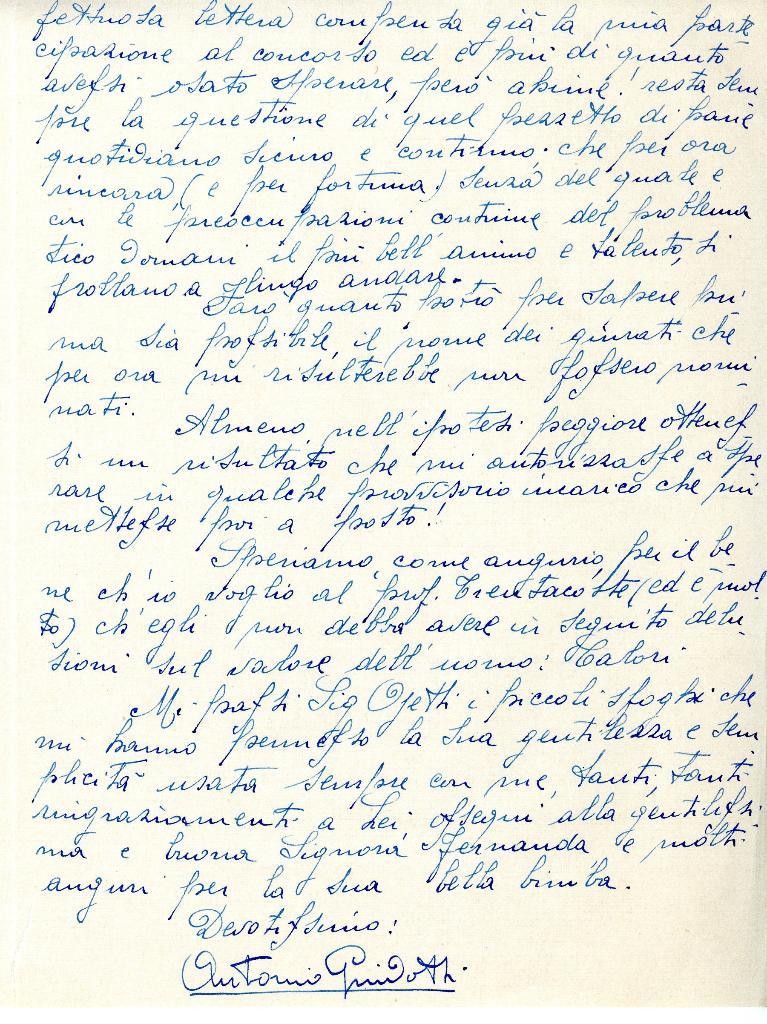 fettuosa lettera compensa già la mia parte
cipazione al concorso ed è più di quanto
avessi osato sperare, però ahimé! resta sem
pre la questione di quel pezzetto di pane
quotidiano sicuro e continuo che per ora
rincara (e per fortuna) senza del quale e
con le preoccupazioni continue del problema
tico domani il più bell'animo e talento, si
frollano a lungo andare.
Farò quanto potrò per sapere pri
ma sia possibile, il nome dei giurati che
per ora mi risulterebbe non fossero nomi-
nati.
Almeno, nell'ipotesi peggiore ottenes
si un risultato che mi autorizzasse a spe
rare in qualche provvisorio incarico che mi
mettesse poi a posto!
Speriamo, come augurio, per il be
ne ch'io voglio al prof. Trentacoste (ed è mol
to) ch'egli non debba avere in seguito delu-
sioni sul valore dell'uomo: Calori
Mi passi Sig Ojetti i piccoli sfoghi che
mi hanno permesso la sua gentilezza e sem
plicità usata sempre con me, tanti, tanti
ringraziamenti a Lei, ossequi alla gentilissi
ma e buona Signora Fernanda e molti
auguri per la sua bella bimba.
Devotissimo:
Antonio Guidotti